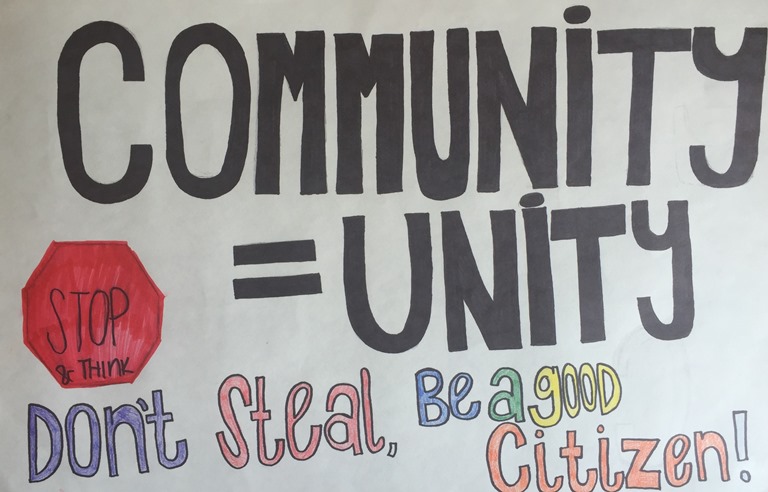 COMMUNiTY
= UNiTY
STOP
& THINK
Don't Steal, Be a good
Citizen!